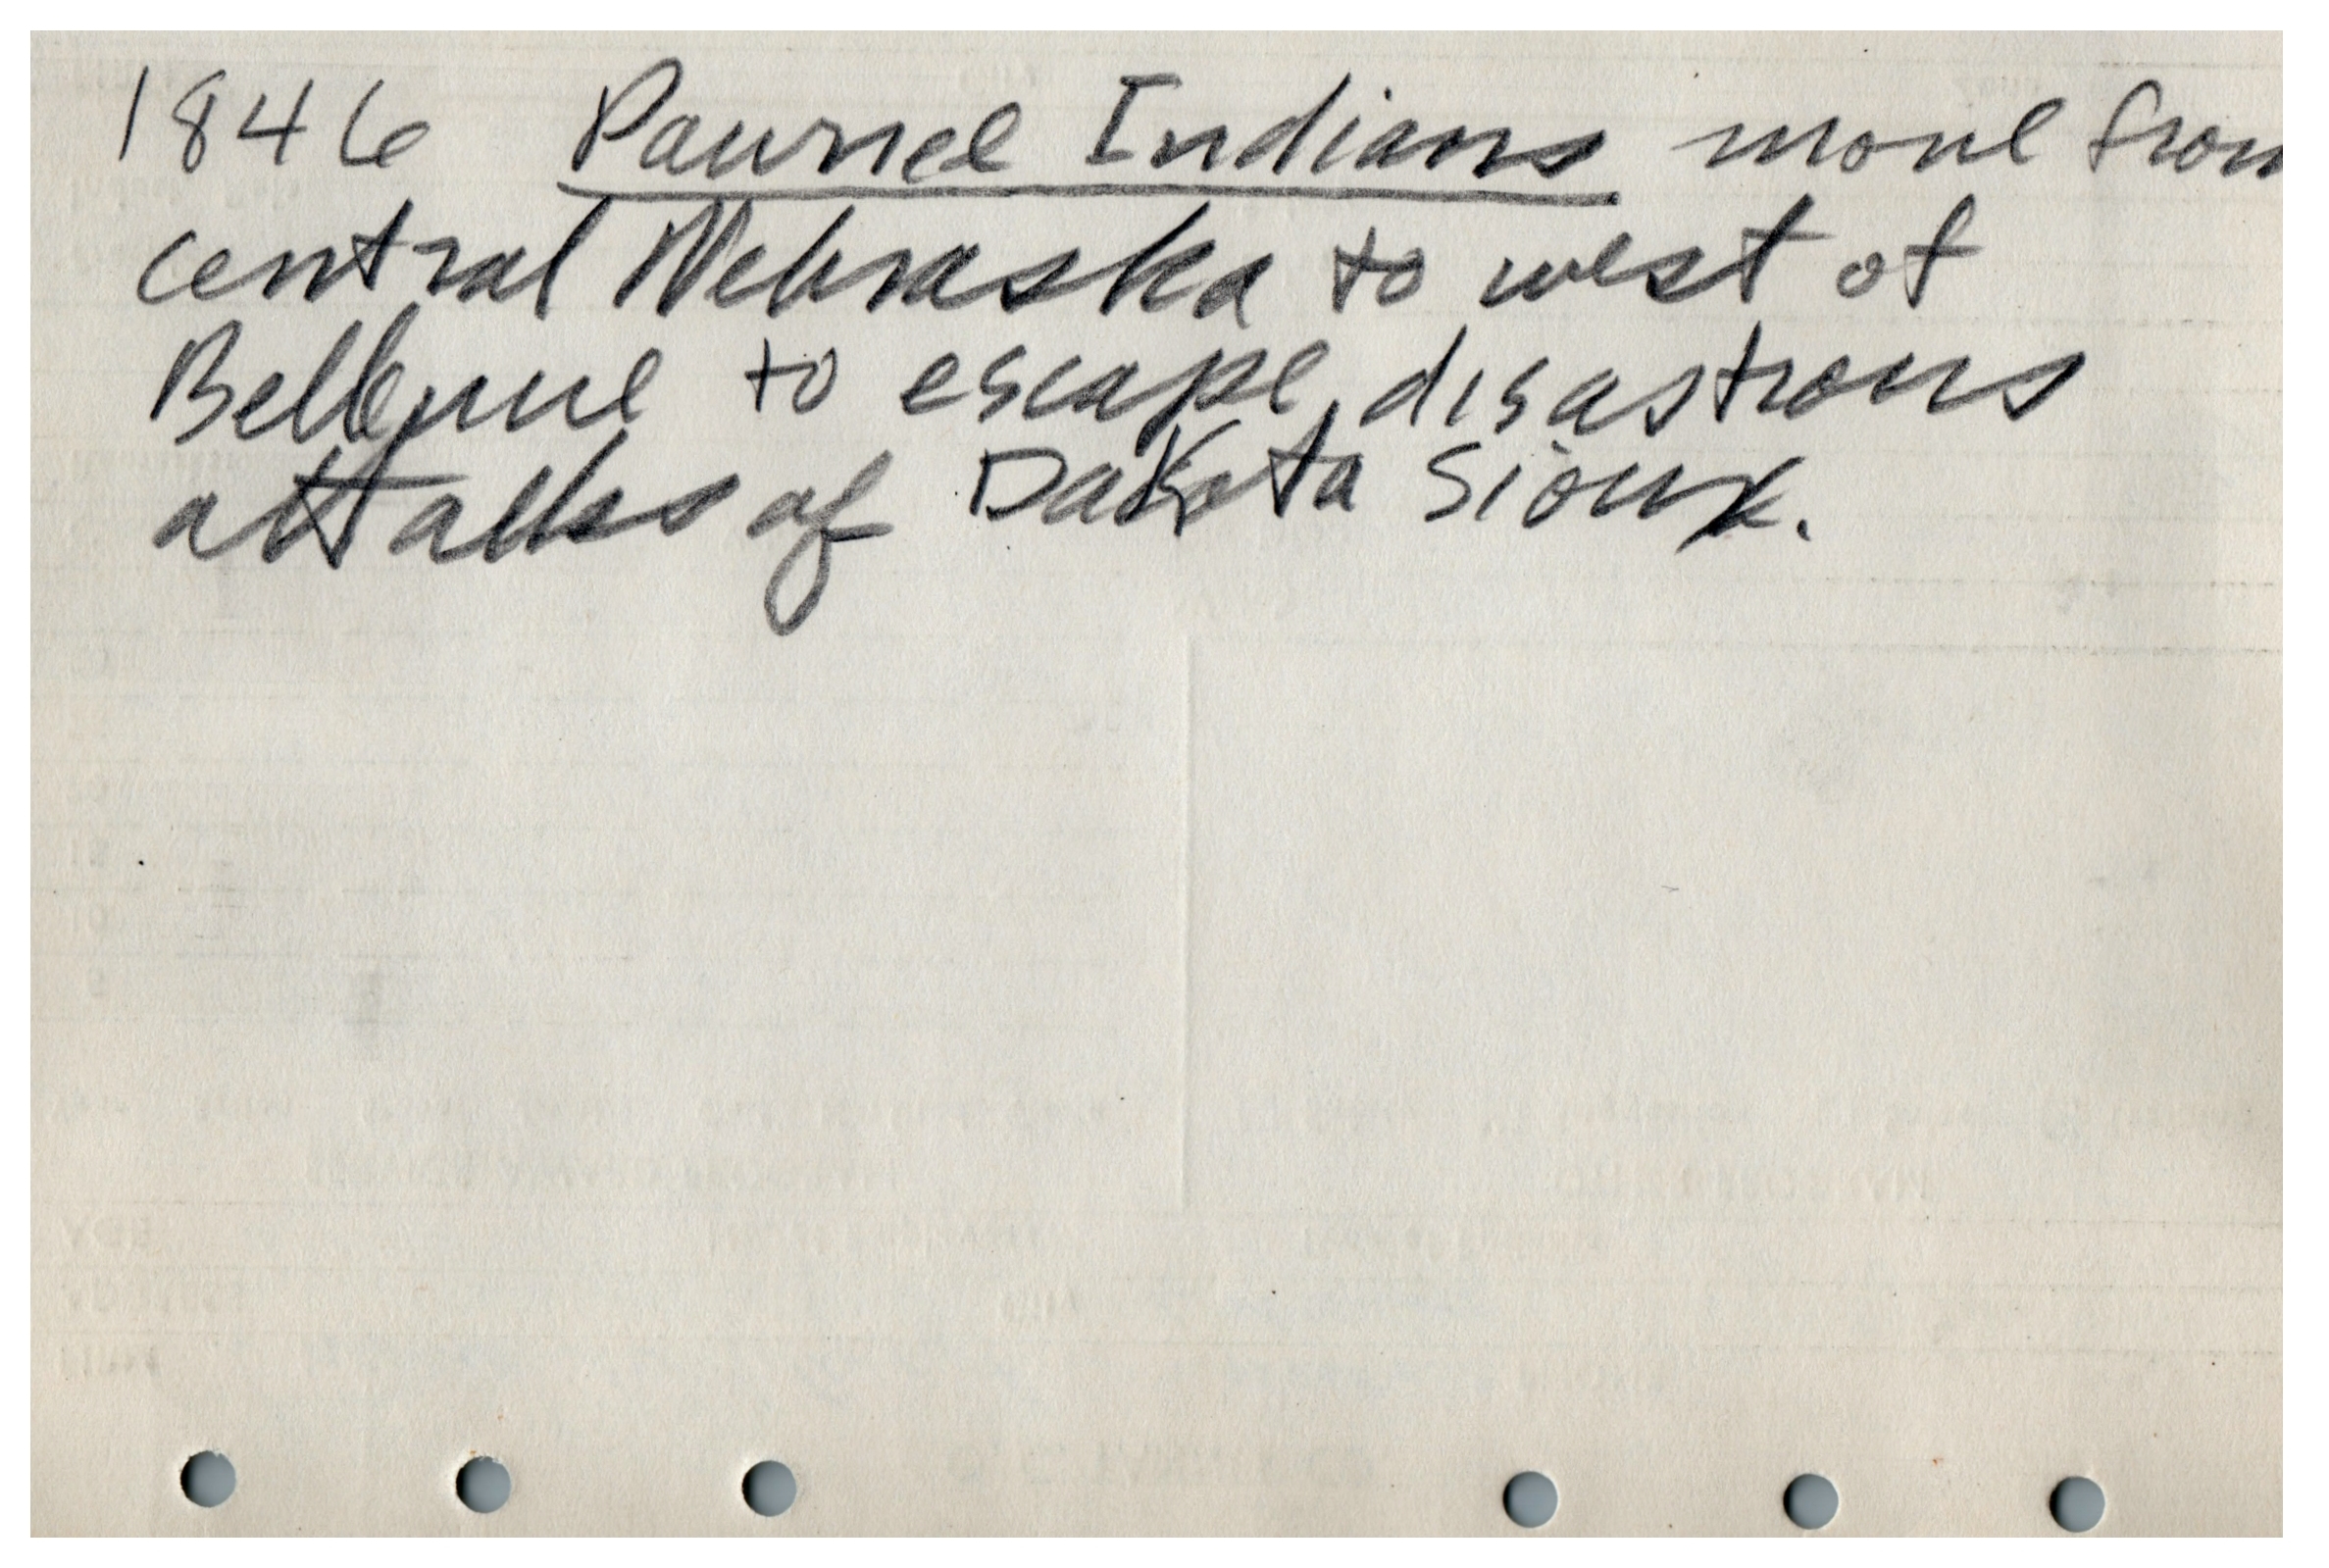 1846 Pawnee Indians move from
central Nebraska to west of
Bellevue to escape disastrous
attacks of Dakota Sioux.